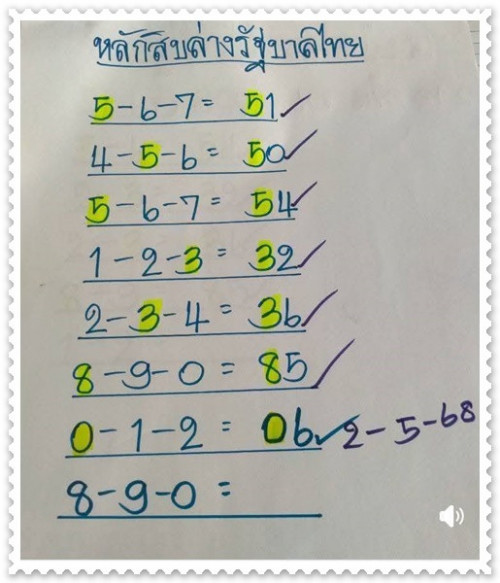 หลักสิบล่างรัฐบาลไทย
5-6-7= 51✓
4-5-6= 50✓
5-6-7= 54✓
1-2-3= 32✓
2-3-4= 36✓
8-9-0= 85✓
0-1-2= 06✓ 2-5-68
8-9-0=